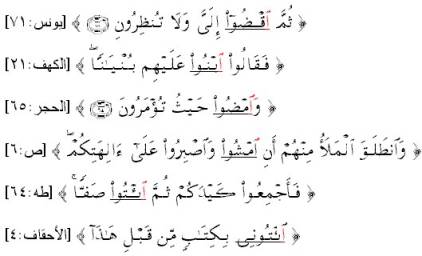 ﴿ ثُمَّ ٱقْضُوٓا۟ إِلَىَّ وَلَا تُنظِرُونِ ٧١ ﴾ [يونس:٧١]
﴿ فَقَالُوا۟ ٱبْنُوا۟ عَلَيْهِم بُنْيَـٰنًا ۖ ﴾ [الكهف:٢١]
﴿ وَٱمْضُوا۟ حَيْثُ تُؤْمَرُونَ ٦٥ ﴾ [الحجر:٦٥]
﴿ وَٱنطَلَقَ ٱلْمَلَأُ مِنْهُمْ أَنِ ٱمْشُوا۟ وَٱصْبِرُوا۟ عَلَىٰٓ ءَالِهَتِكُمْ ۖ ﴾ [ص:٦]
﴿ فَأَجْمِعُوا۟ كَيْدَكُمْ ثُمَّ ٱئْتُوا۟ صَفًّا ۚ ﴾ [طه:٦٤]
﴿ ٱئْتُونِى بِكِتَـٰبٍ مِّن قَبْلِ هَـٰذَآ ﴾ [الأحقاف:٤]